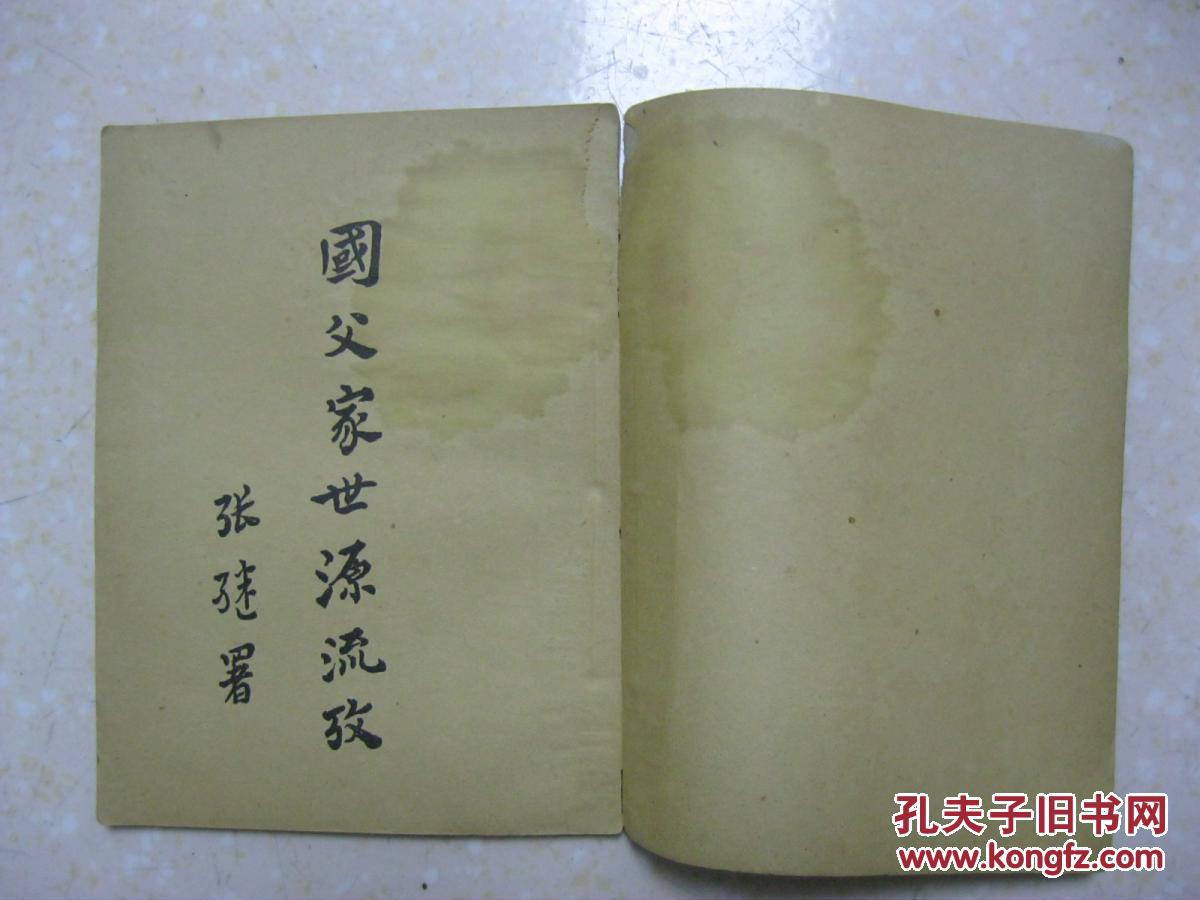 國父家世源流攷
张继署
孔夫子旧书网
www.kongfz.com